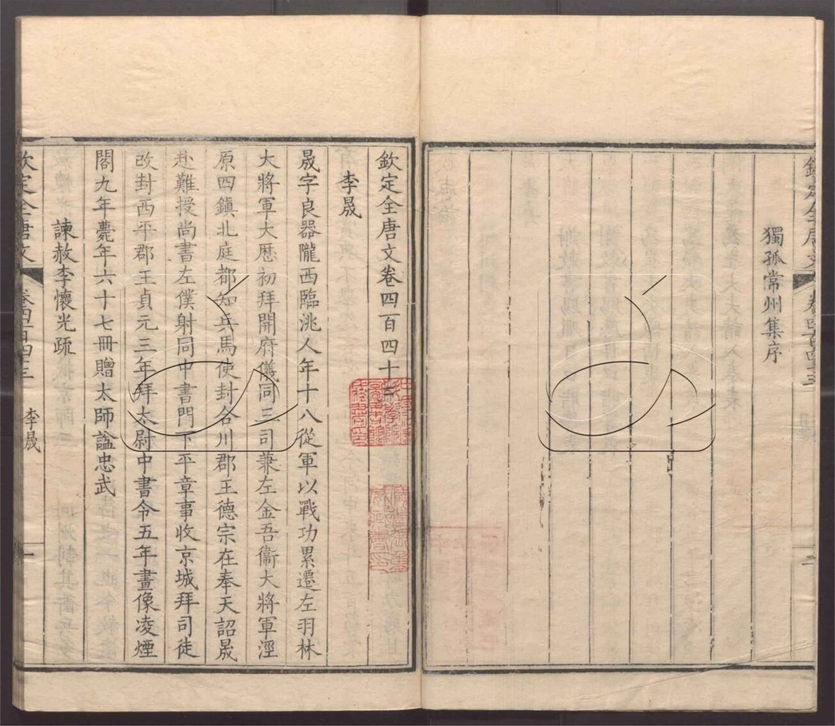 獨孤常州集序
欽定全唐文卷四百四十三
李晟
晟字良器隴西臨洮人年十八從軍以戰功累遷左羽林
大將軍大厯初拜開府儀同三司兼左金吾衞大將軍涇
原四鎮北庭都知兵馬使封合川郡王德宗在奉天詔晟
赴難授尚書左僕射同中書門下平章事收京城拜司徒
改封西平郡王貞元三年拜太尉中書令五年畫像凌煙
閣九年薨年六十七冊贈太師諡忠武
諫赦李懷光疏
欽定全唐文 卷四百四十三 李晟 一